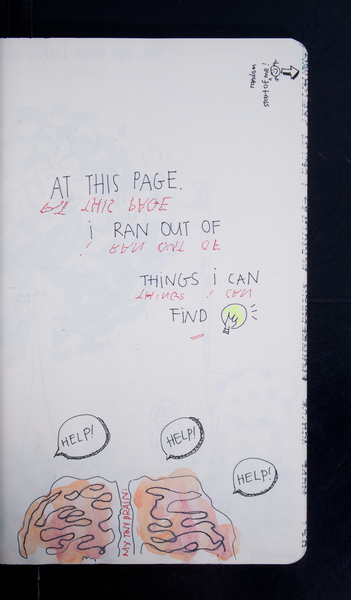 random
start of me!
AT THIS PAGE.
AT THIS PAGE
i RAN OUT OF
i RAN OUT OF
THINGS i CAN
THINGS i CAN
FIND
HELP!
HELP!
HELP!
MY TINY BRAIN!